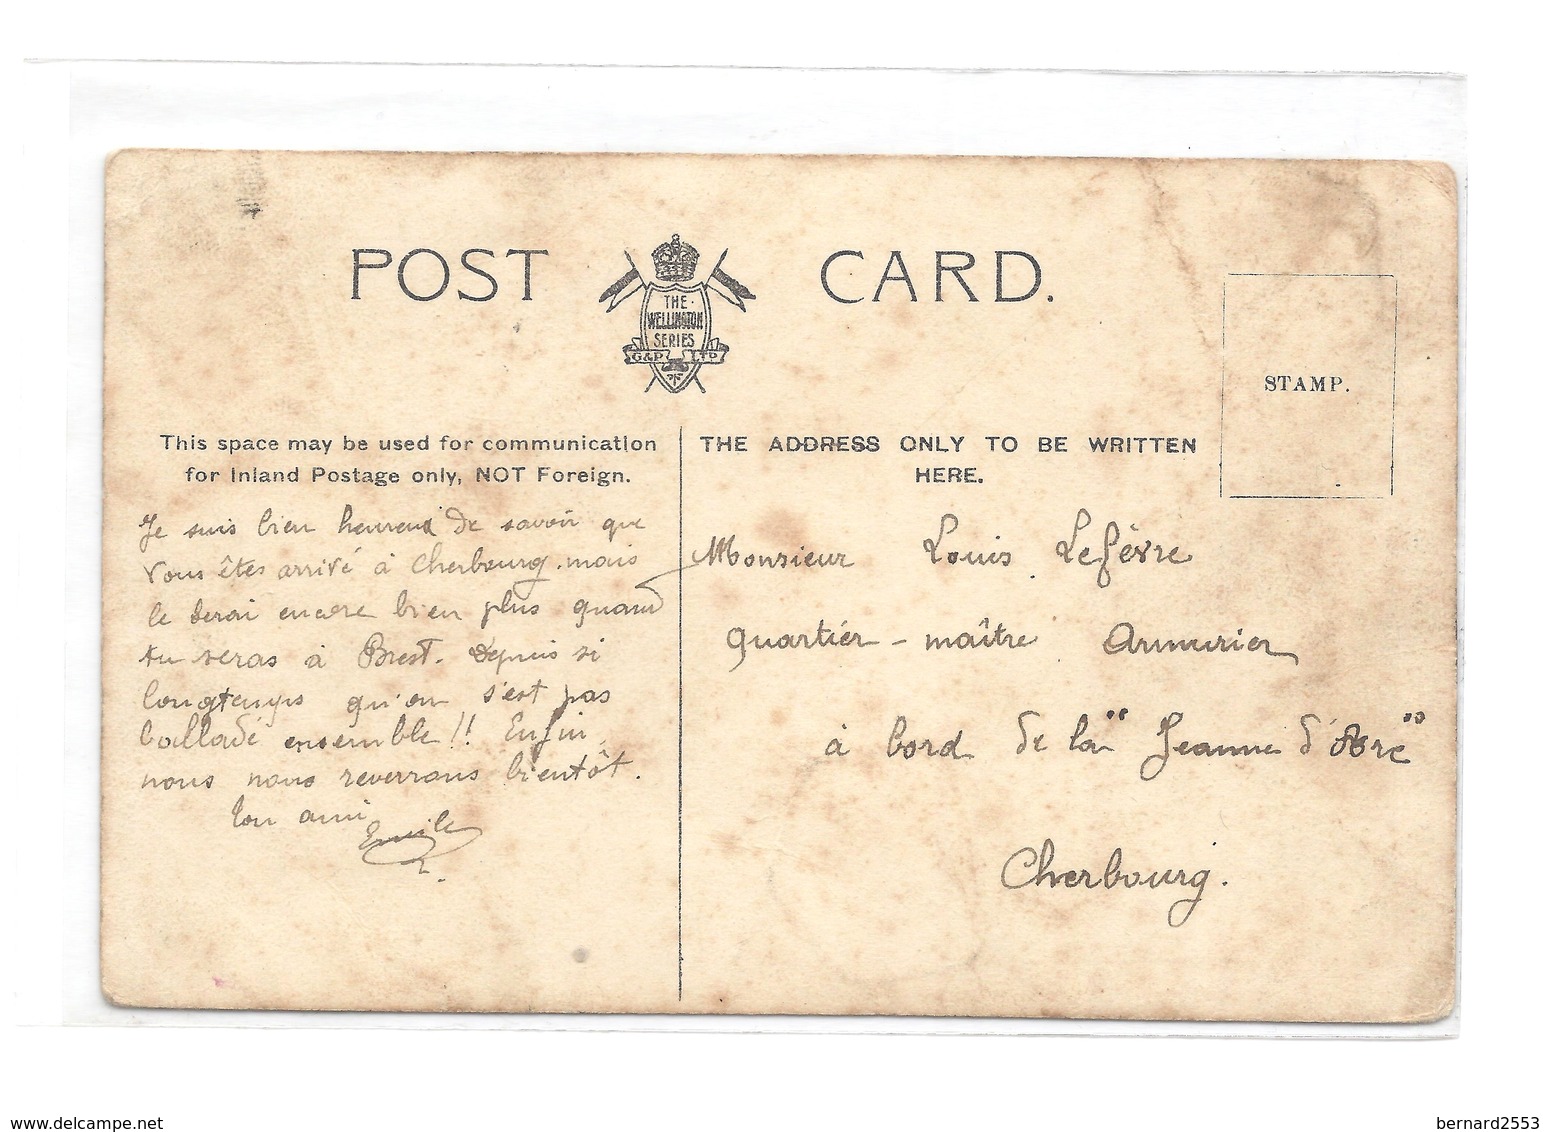 POST CARD.
THE
WELLINGTON
SERIES
G&P LTD
STAMP.
This space may be used for communication
for Inland Postage only, NOT Foreign.
Je suis bien heureux de savoir que
vous êtes arrivé à Cherbourg. mais
le serai encore bien plus quand
tu seras à Brest. Depuis si
longtemps qu'on s'est pas
balladé ensemble!! Enfin
nous nous reverrons bientôt.
Ton ami
Emile
THE ADDRESS ONLY TO BE WRITTEN
HERE.
Monsieur Louis Lefèvre
Quartier-maître Armurier
à bord de la "Jeanne d'Arc"
Cherbourg.
www.delcampe.net
bernard2553